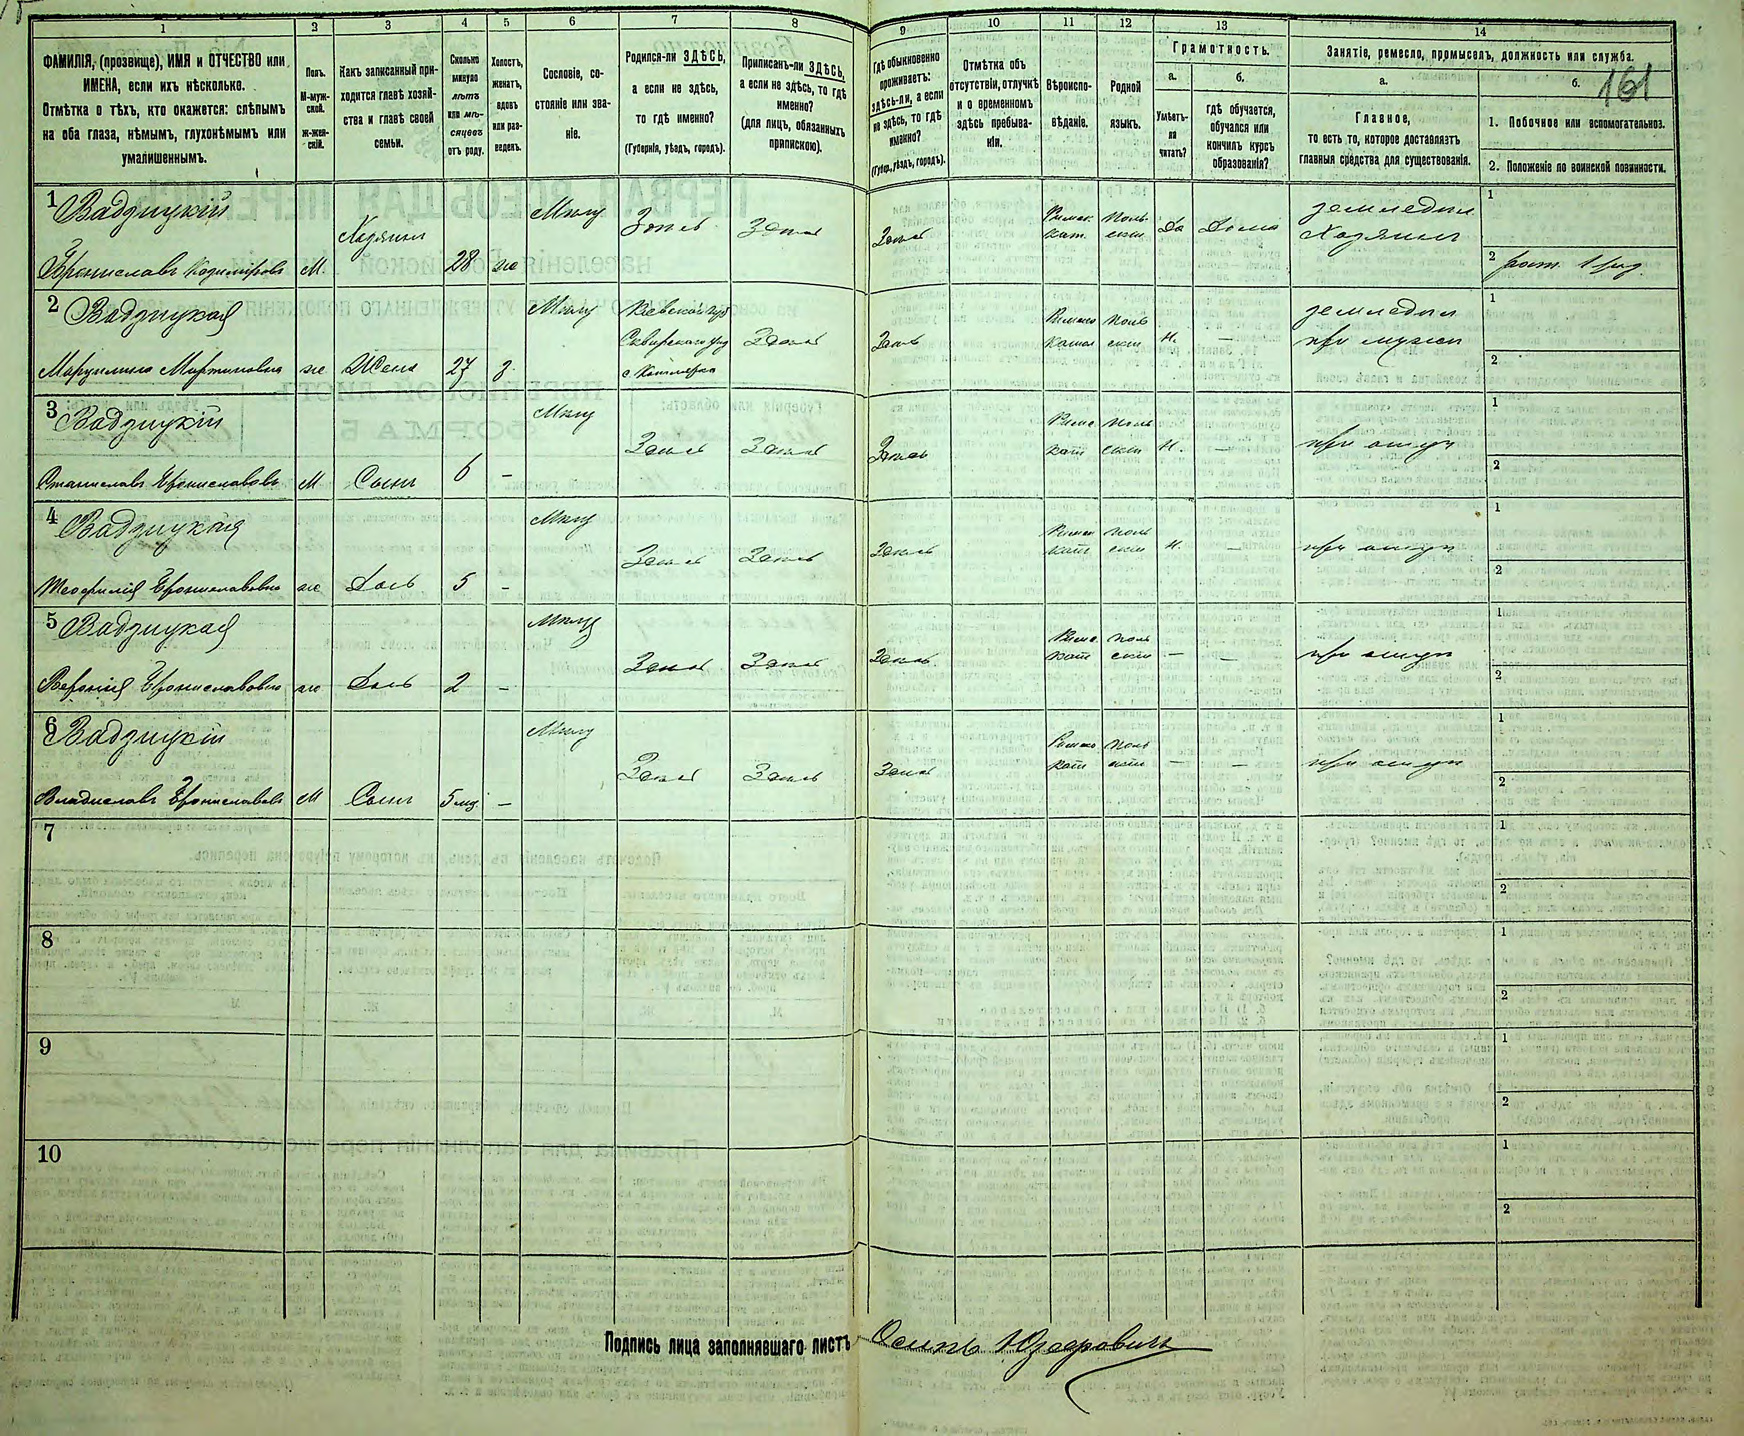 1 2 3 4 5 6 7 8 9 10 11 12 13 14
161
ФАМИЛІЯ, (прозвище), ИМЯ и ОТЧЕСТВО или
ИМЕНА, если ихъ нѣсколько.
Отмѣтка о тѣхъ, кто окажется: слѣпымъ
на оба глаза, нѣмымъ, глухонѣмымъ или
умалишеннымъ.
Полъ.
М-муж-
ской.
Ж-жен-
скій.
Какъ записанный при-
ходится главѣ хозяй-
ства и главѣ своей
семьи.
Сколько
минуло
лѣтъ
или мѣ-
сяцевъ
отъ роду.
Холостъ,
женатъ,
вдовъ
или раз-
веденъ.
Сословіе, со-
стояніе или зва-
ніе.
Родился-ли ЗДѢСЬ,
а если не здѣсь,
то гдѣ именно?
(Губернія, уѣздъ, городъ).
Приписанъ-ли ЗДѢСЬ,
а если не здѣсь, то гдѣ
именно?
(для лицъ, обязанныхъ
припискою).
Гдѣ обыкновенно
проживаетъ:
здѣсь-ли, а если
не здѣсь, то гдѣ
именно?
(Губер., уѣздъ, городъ).
Отмѣтка объ
отсутствіи, отлучкѣ
и о временномъ
здѣсь пребыва-
ніи.
Вѣроиспо-
вѣданіе.
Родной
языкъ.
Грамотность.
а.
Умѣетъ-
ли
читать?
б.
гдѣ обучается,
обучался или
кончилъ курсъ
образованія?
Занятіе, ремесло, промыселъ, должность или служба.
а.
Главное,
то есть то, которое доставляетъ
главныя средства для существованія.
б.
1. Побочное или вспомогательное.
2. Положеніе по воинской повинности.
1 Вадзицкій
Брониславъ Казиміровъ М. Хозяинъ 28 ж Здѣсь Здѣсь Здѣсь Римск. кат. поль ски Да Дома земледѣл Хозяинъ
1
2 рат. 1 раз.
2 Вадзицкая
Мартиновна ж Жена 27 з. Кіевской губ Сквирскаго уѣз Здѣсь Здѣсь Римско катол поль ски Н. — земледѣл при мужѣ
1
2
3 Вадзицкій
Станиславъ Брониславовъ М Сынъ 6 — Здѣсь Здѣсь Здѣсь Римс кат поль ски Н. — при отцѣ
1
2
4 Вадзицкая
Теофилія Брониславовна ж Дочь 5 — Здѣсь Здѣсь Здѣсь Римск кат поль ски Н. — при отцѣ
1
2
5 Вадзицкая
Брониславовна ж Дочь 2 — Здѣсь Здѣсь Здѣсь Римс кат поль ски — — при отцѣ
1
2
6 Вадзицкій
Владиславъ Брониславовъ М Сынъ 5 мѣ — Здѣсь Здѣсь Здѣсь Римско кат поль ски — — при отцѣ
1
2
7
1
2
8
1
2
9
1
2
10
1
2
Подпись лица заполнявшаго листъ Осипъ